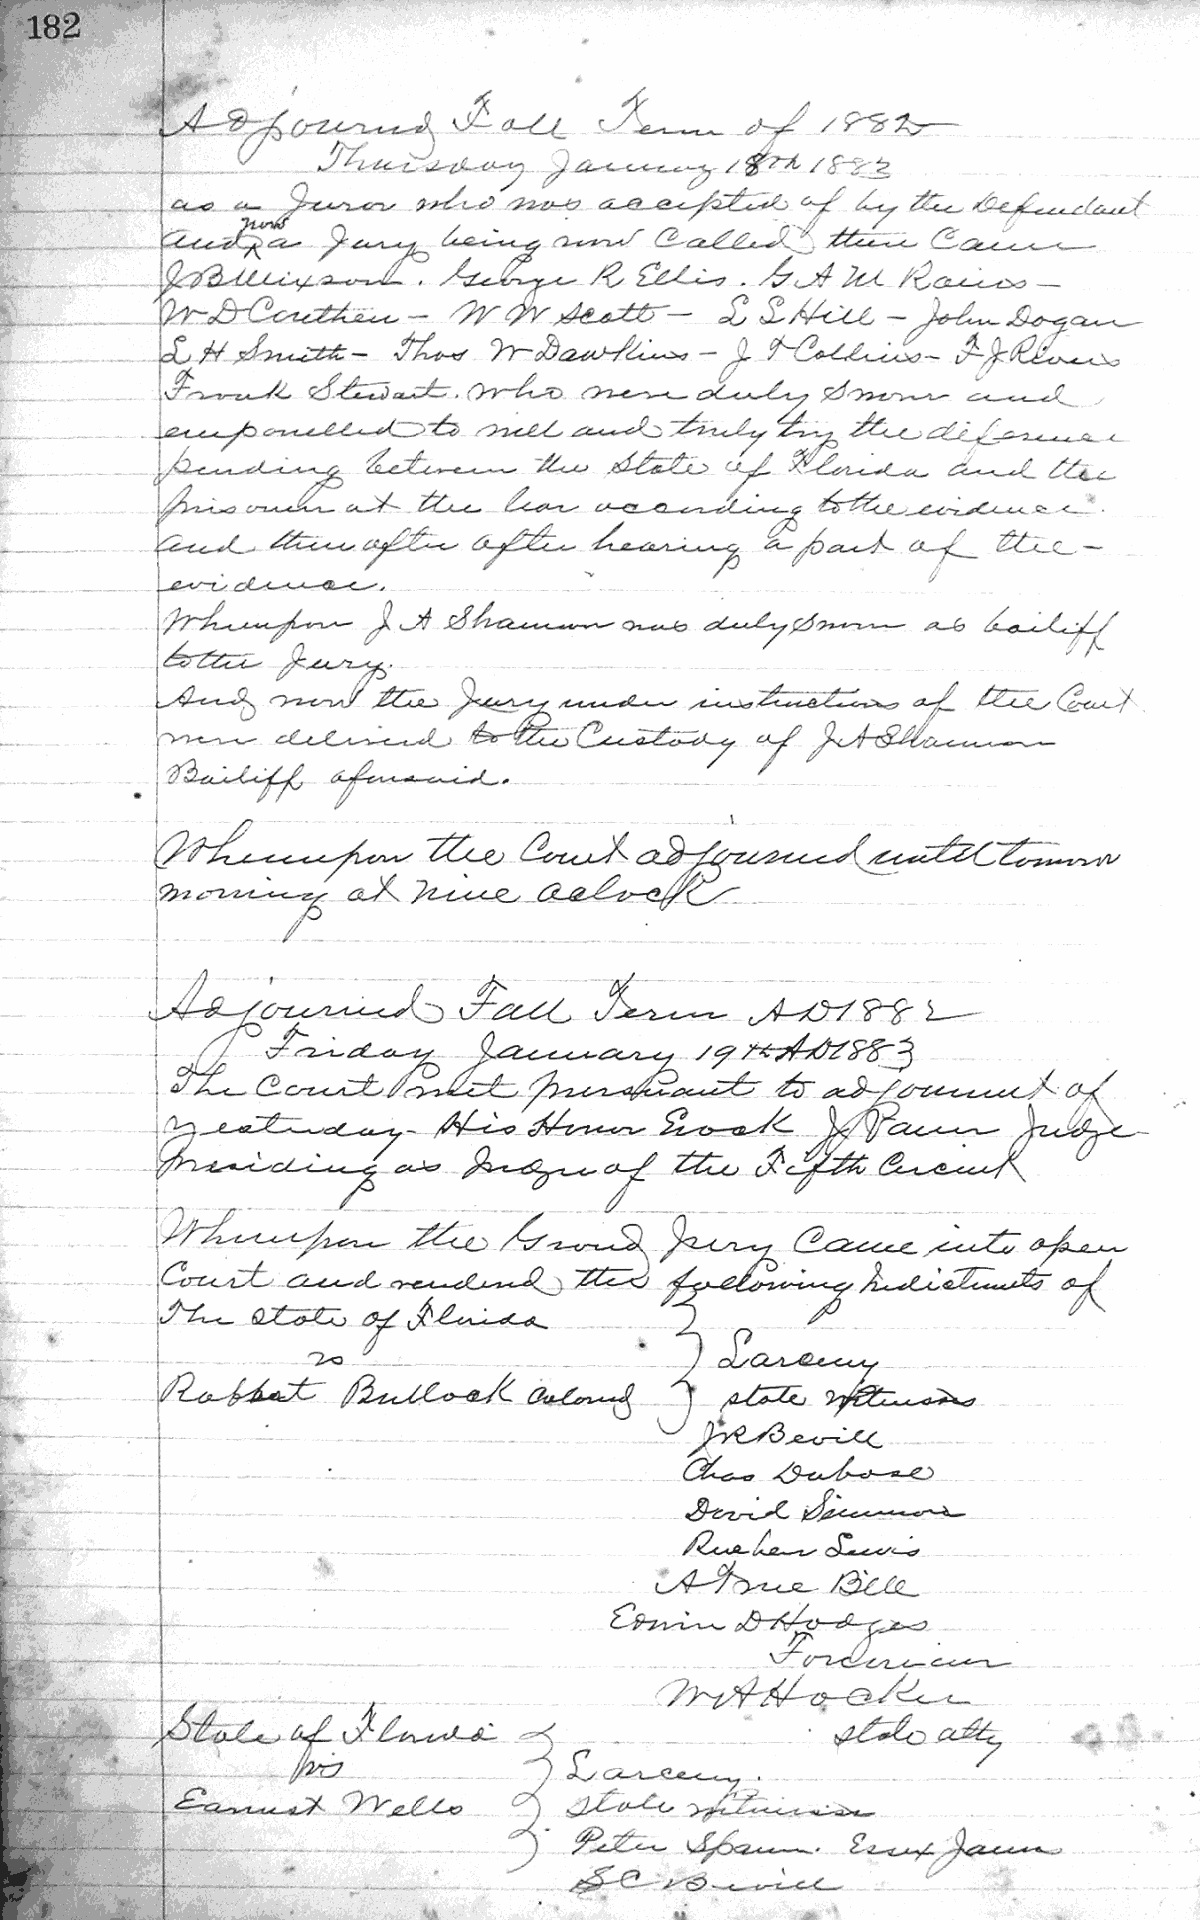 182
Adjourned Fall Term of 1882
Thursday January 18th 1883
as a Juror who was accepted of by the Defendant
and now a Jury being now Called there Came
J B Mixson. George R Ellis. G A M Rains -
W D Couthen - W W Scott - L L Hill - John Dogan
L H Smith - Thos W Dawkins - J T Collins - F J Rivers
Frank Stewart. who were duly Sworn and
empanelled to well and truly try the diference
pending between the State of Florida and the
prisoner at the bar according to the evidence.
and then after after hearing a part of the -
evidence.
Whereupon J A Shannon was duly Sworn as bailiff
to the Jury.
And now the Jury under instructions of the Court
were delivered to the Custody of J A Shannon
Bailiff aforesaid.
Whereupon the Court adjourned until tomorow
morning at Nine oclock
Adjourned Fall Term AD 1882
Friday January 19th AD 1883
The Court met pursuant to adjournment of
yesterday - His Honor Enock J Judge
Presiding as Judge of the Fifth Circuit
Whereupon the Grand Jury Came into open
Court and rendered the following Indictments of
The State of Florida
vs
Larceny
Robbert Bullock Colored
state witnesses
J R Bevill
Chas Dubose
David Simmons
Rueben Lewis
A True Bill
Edwin D Hodges
Foreman
W A Hocker
state atty
State of Florida
vs
Larceny.
Earnest Wells
State witnesses
Peter Spann. Essex James
S C Bevill